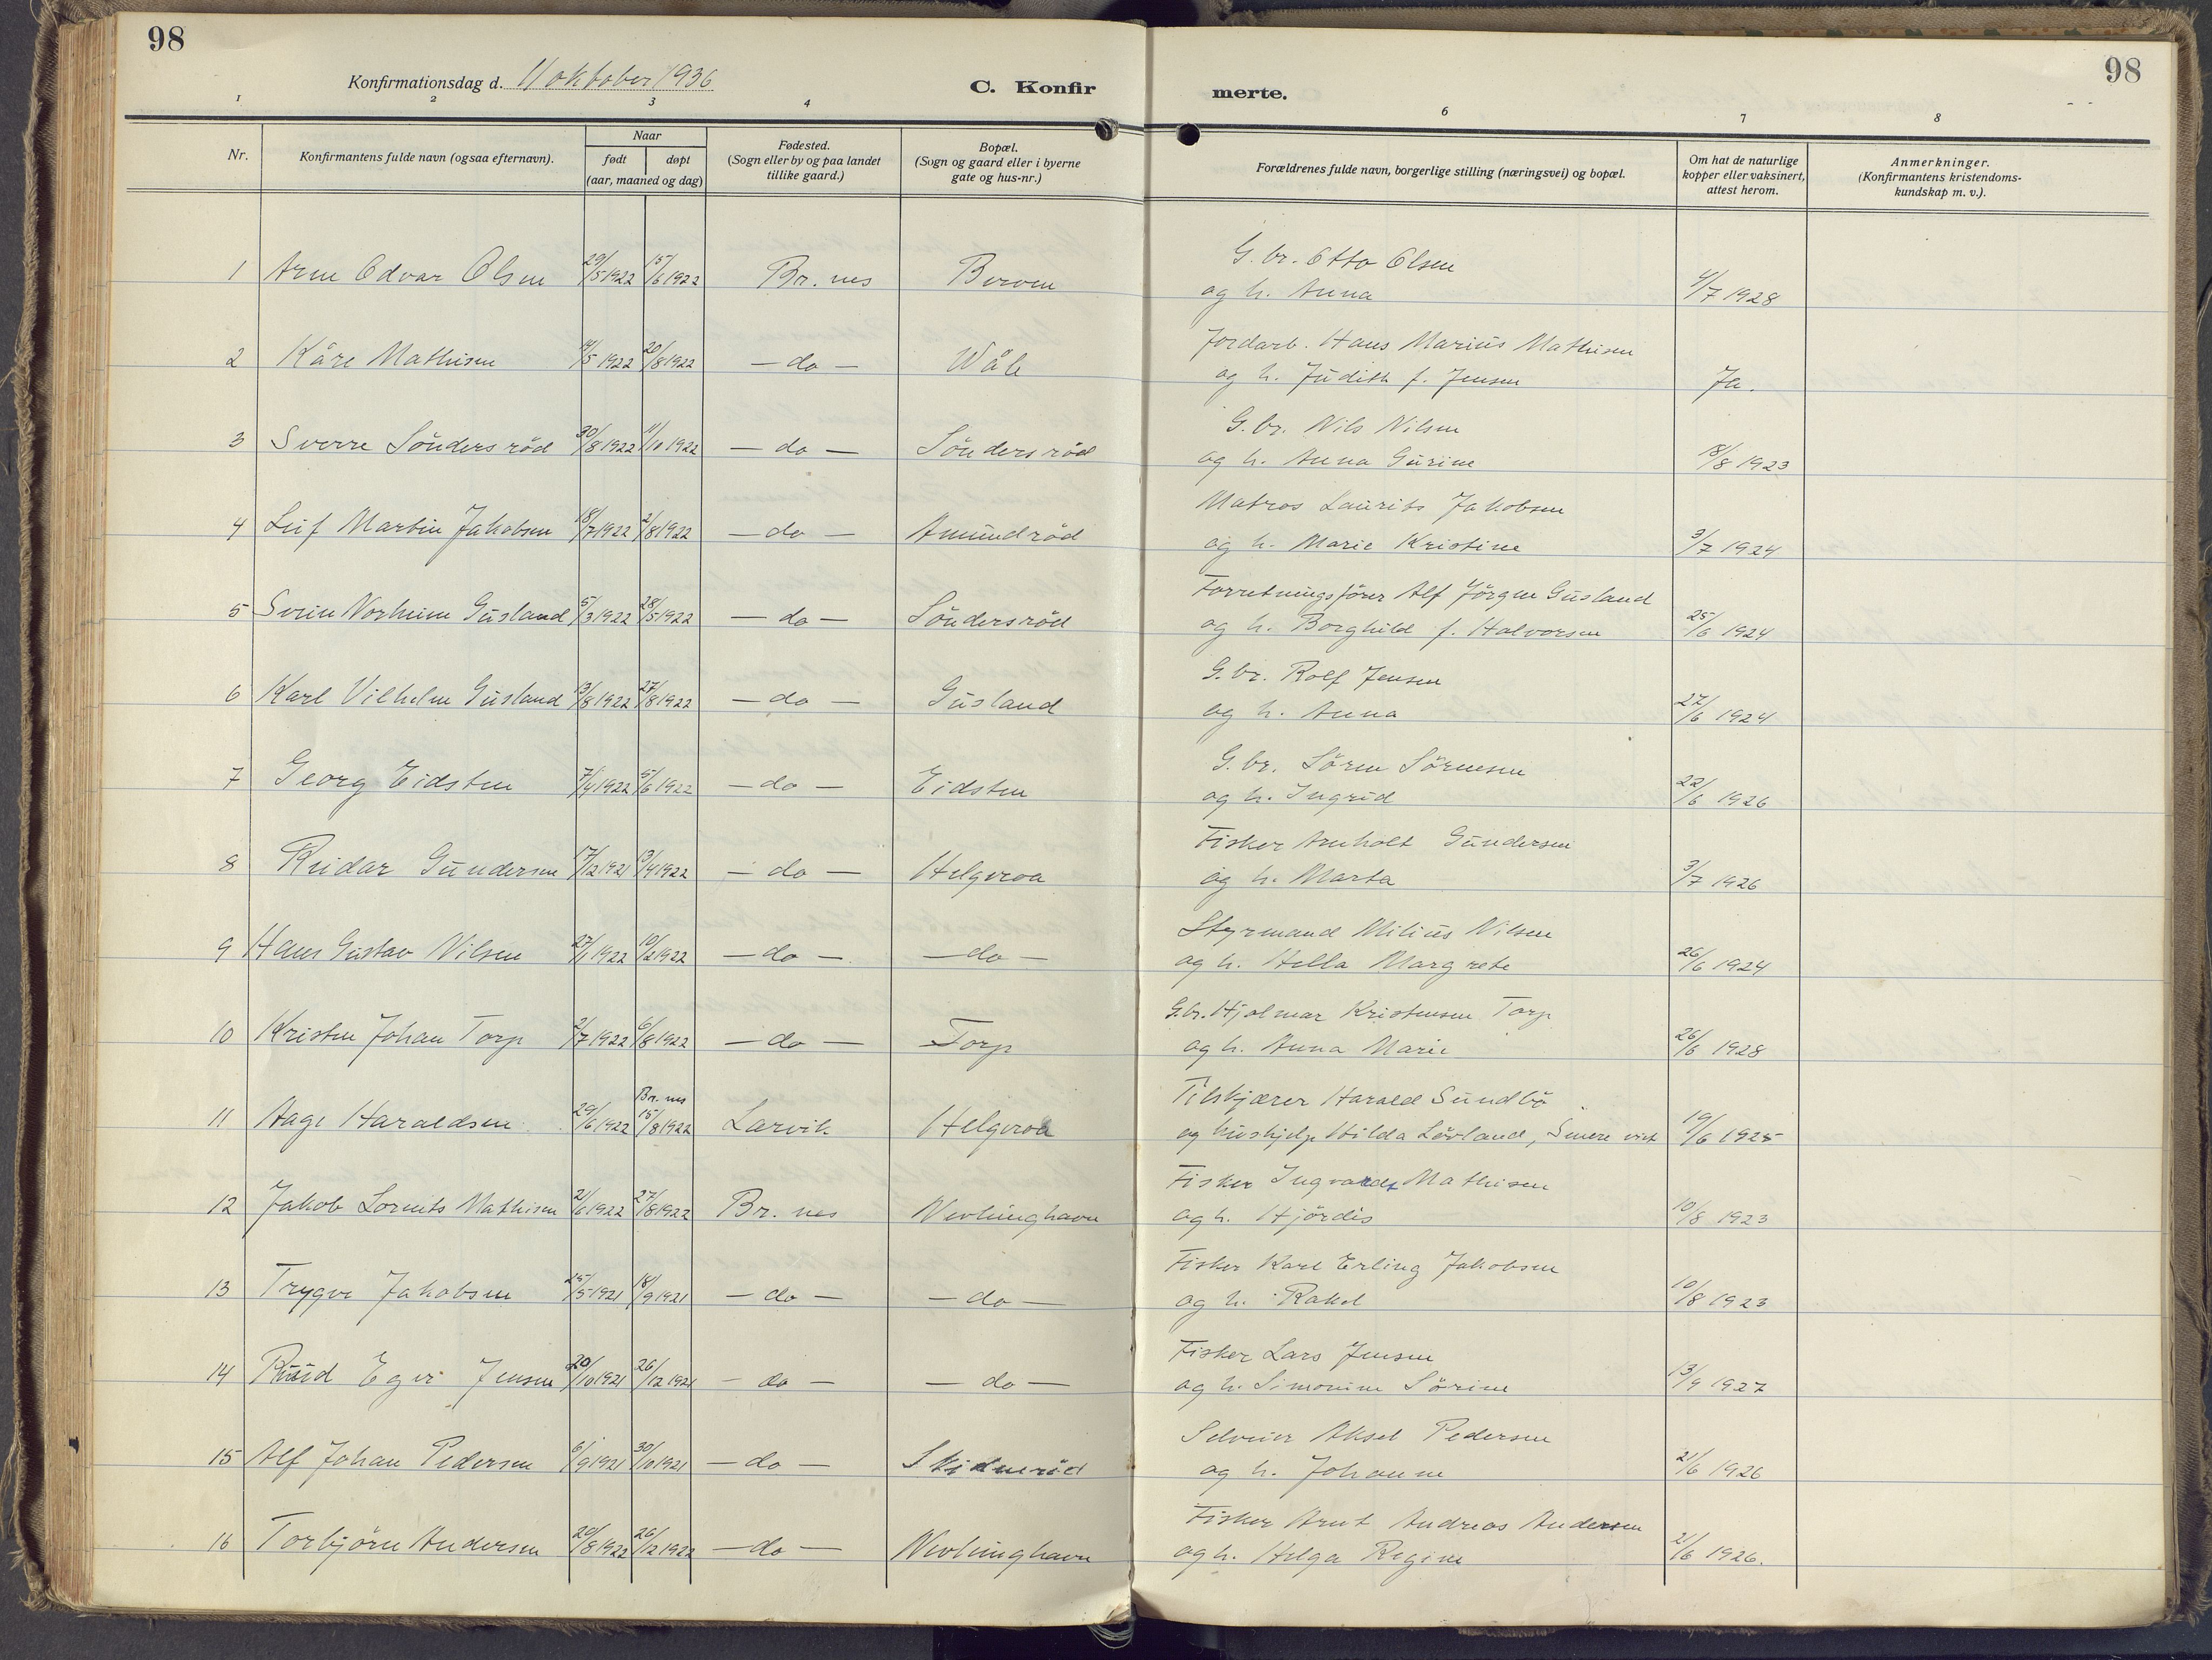 98
98
Konfirmationsdag d. 11 oktober 1936
C. Konfir
merte.
1 2 3 4 6 7 8
Nr.
Konfirmantens fulde navn (ogsaa efternavn).
Naar
født
døpt
(aar, maaned og dag)
Fødested.
(Sogn eller by og paa landet
tillike gaard.)
Bopæl.
(Sogn og gaard eller i byerne
gate og hus-nr.)
Forældrenes fulde navn, borgerlige stilling (næringsvei) og bopæl.
Om hat de naturlige
kopper eller vaksinert,
attest herom.
Anmerkninger.
(Konfirmantens kristendoms-
kundskap m. v.).
G. br. Otto Olsen
1 Arne Odvar Olsen 29/5 1922 15/6 1922 Br. nes Berven og h. Anna 4/7 1928
Jordarb. Hans Marius Mathisen
2 Kåre Mathisen /5 1922 20/8 1922 — do — Wåle og h. Judith f. Jensen Ja.
G. br. Nils Nilsen
3 Sverre Söndersröd 30/8 1922 11/10 1922 — do — Söndersröd og h. Anna Gurine 18/8 1923
Matros Laurits Jakobsen
4 Leif Martin Jakobsen 18/7 1922 2/8 1922 — do — Amundröd og h. Marie Kristine 3/7 1924
Forretningsförer Alf Jörgen Gusland
5 Svein Norheim Gusland 5/3 1922 28/5 1922 — do — Söndersröd og h. Borghild f. Halvorsen 25/6 1924
G. br. Rolf Jensen
6 Karl Vilhelm Gusland 13/8 1922 27/8 1922 — do — Gusland og h. Anna 27/6 1924
G. br. Sören Sörensen
7 Georg Eidsten 7/4 1922 5/6 1922 — do — Eidsten og h. Ingrid 22/6 1926
Fisker Arnholt Gundersen
8 Reidar Gundersen 17/12 1921 13/4 1922 — do — Helgeroa og h. Marta 3/7 1926
Styrmand Milius Nilsen
9 Hans Gustav Nilsen 27/1 1922 10/2 1922 — do — — do — og h. Hella Margrete 26/6 1924
G.br. Hjalmar Kristensen Torp
10 Kristen Johan Torp 2/7 1922 6/8 1922 — do — Torp og h. Anna Marie 26/6 1928
Br. nes
Tilskjærer Harald Sundbö
11 Aage Haraldsen 29/6 1922 15/8 1922 Larvik Helgeroa og hushjelp Hilda Lövland, Senere viet 19/6 1925
Fisker Ingvardt Mathisen
12 Jakob Lornits Mathisen 21/6 1922 27/8 1922 Br. nes Nevlunghavn og h. Hjördis 10/8 1923
Fisker Karl Erling Jakobsen
13 Trygve Jakobsen 25/5 1921 18/9 1921 — do — — do — og h. Rakel 10/8 1923
Fisker Lars Jensen
14 Egvi Jensen 20/10 1921 26/12 1921 — do — — do — og h. Simonine Sörine 13/9 1927
Selveier Aksel Pedersen
15 Alf Johan Pedersen 6/9 1921 30/10 1921 — do — og h. Johanne 21/6 1926
Fisker Arnt Andreas Andersen
16 Torbjörn Andersen 20/8 1922 26/12 1922 — do — Nevlunghavn og h. Helga Regine 21/6 1926.